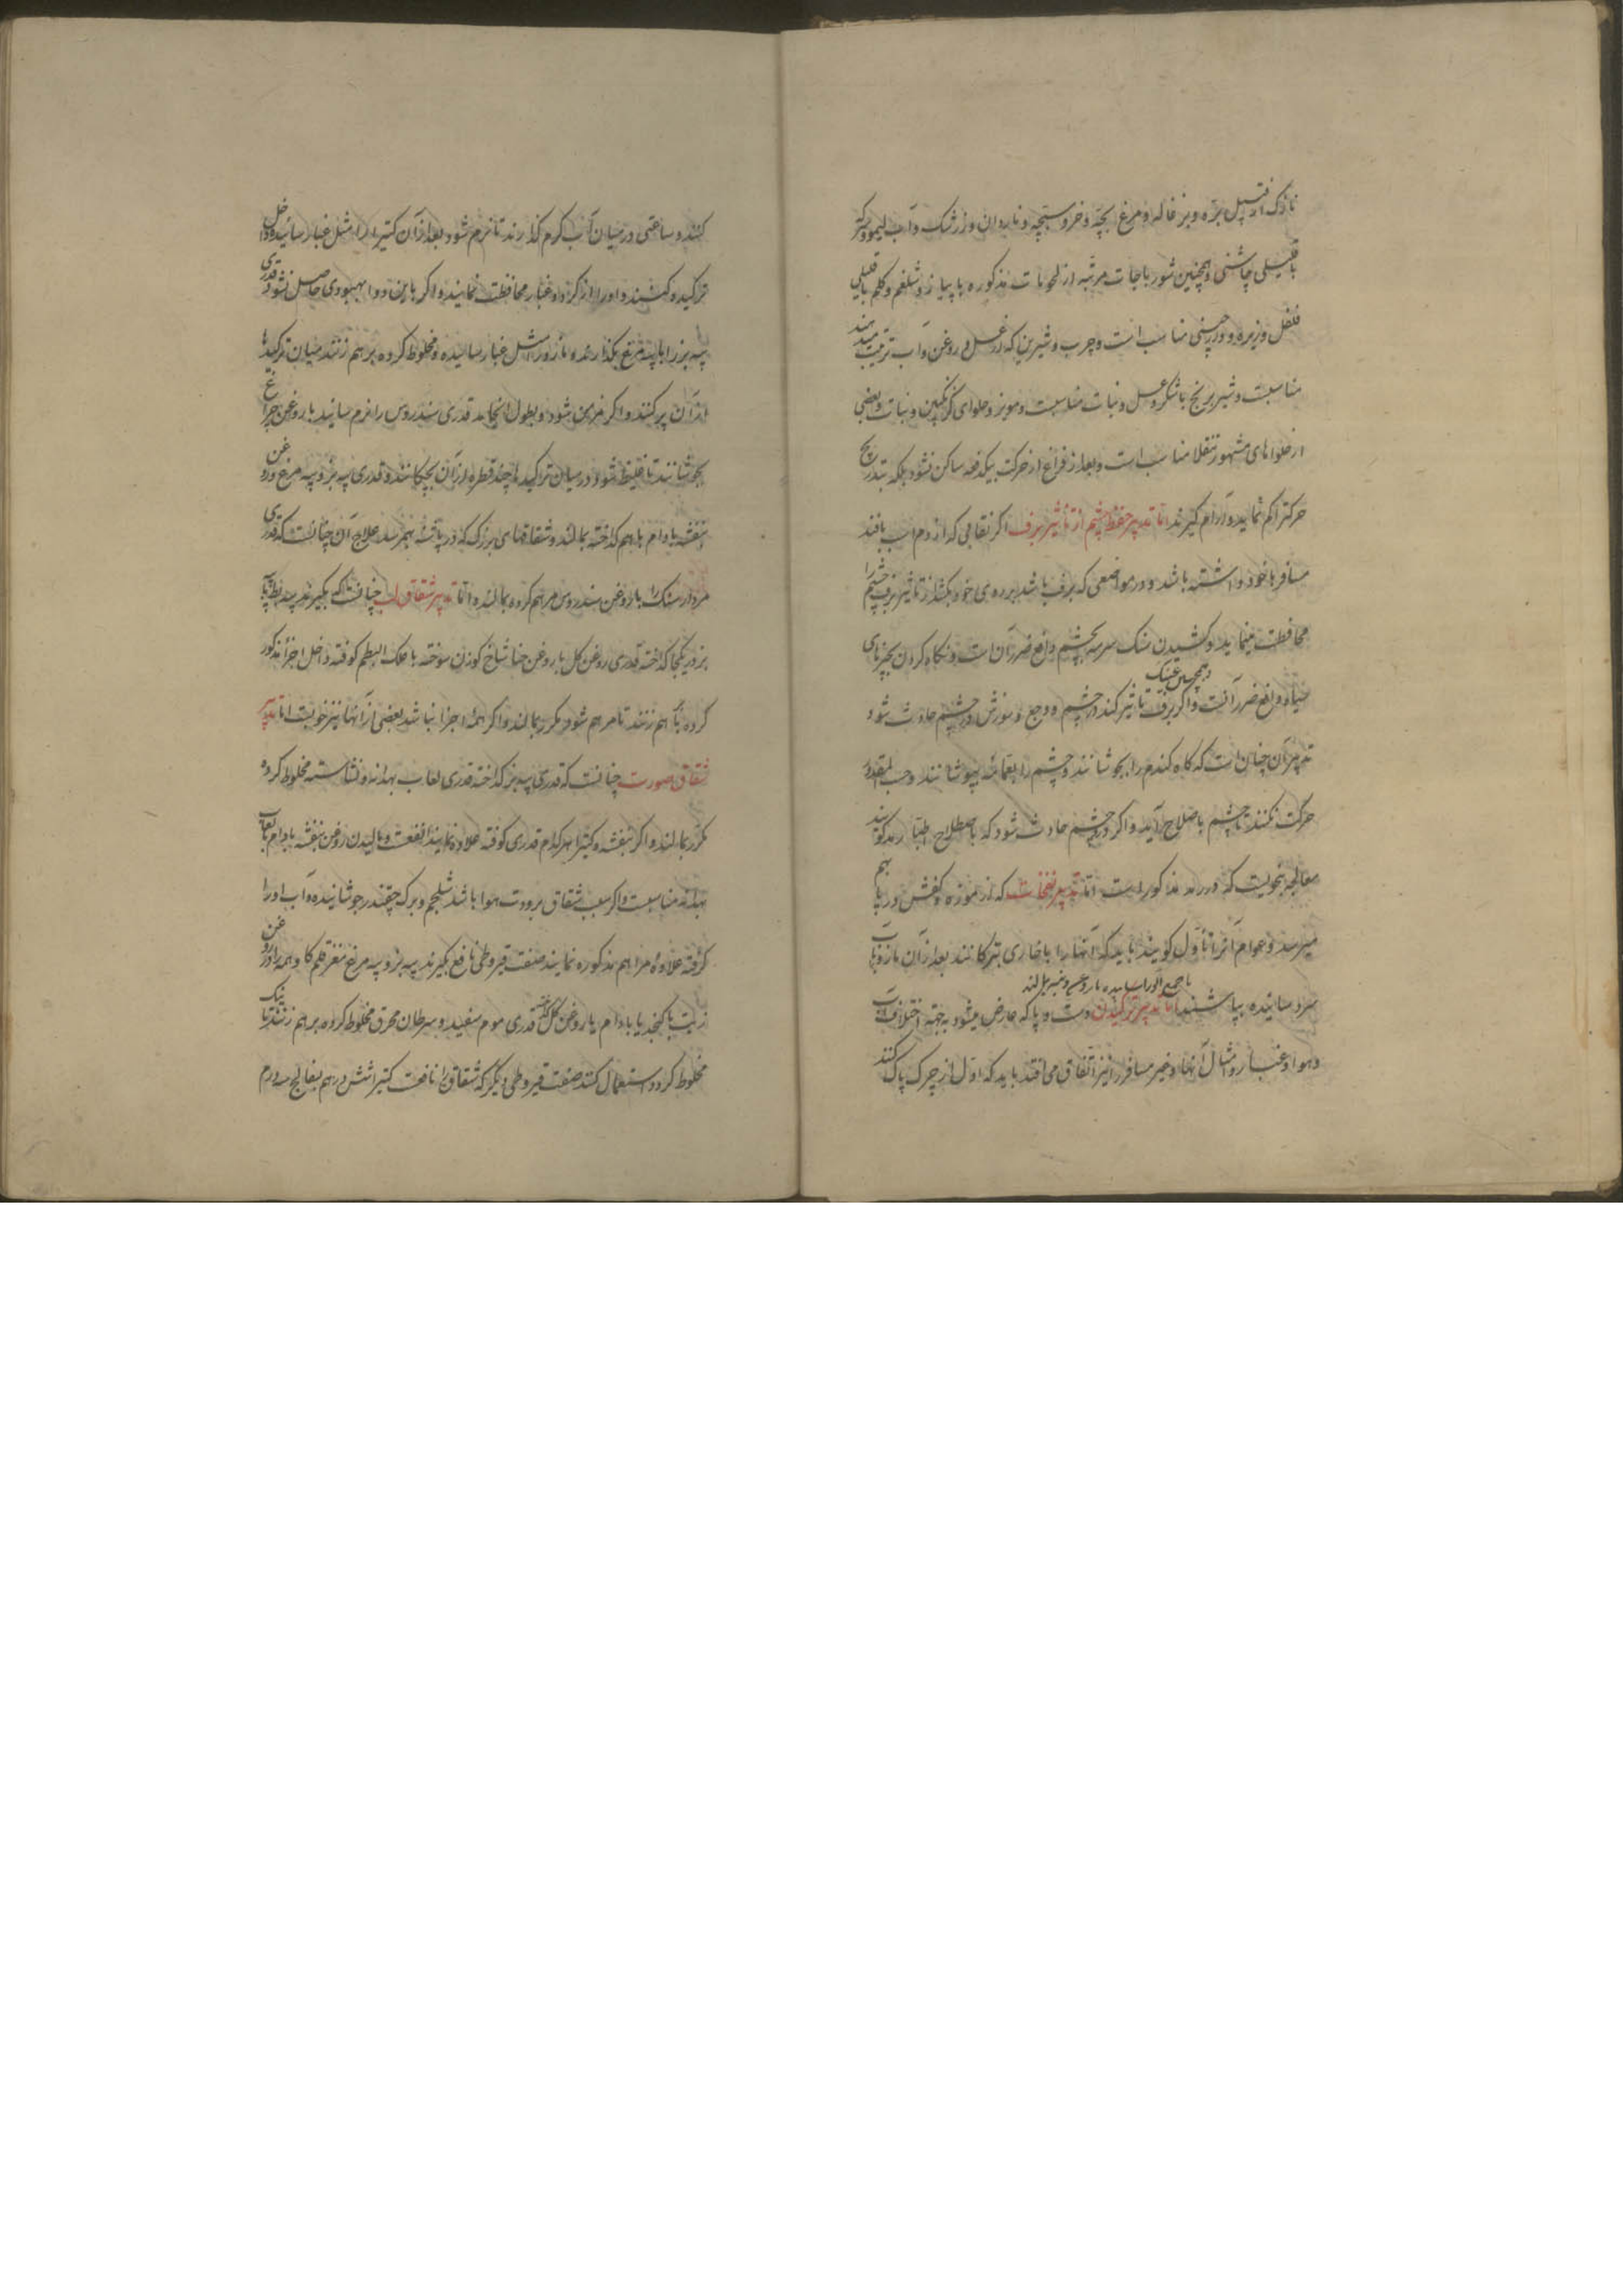 نازک از قبیل بره و بزغاله و مرغ بچه و خروسبچه و ناردان و زرشک و آب لیمو و سرکه
با قلیلی چاشنی و همچنین شورباجات مرتبه از لحومات مذکوره با پیاز و شلغم و کلم با قلیلی
فلفل و زیره و دارچینی مناسب است و چرب و شیرین که از عسل و روغن و آب ترتیب دهند
مناسبست و شیربرنج با شکر و عسل و نبات مناسبست و مویز و حلوای کزنکبین و نبات و بعضی
از حلواهای مشهور تنقلا مناسب است و بعد از فراغ از حرکت بیکدفعه ساکن نشود بلکه بتدریج
حرکت را کم نماید و آرام کیرند اما تدبیر حفظ چشم از تأثیر برف اکر نقابی که از دم اسب بافند
مسافر با خود داشته باشد و در مواضعی که برف باشد بر روی خود بکشد از تأثیر برف چشم را
محافظت مینماید و کشیدن سنک سرمه بچشم دافع ضرر آن است و نکاه کردن بچیزهای
سیاه دافع ضرر آنست و همچنین عینک و اکر برف تأثیر کند در چشم و وجع و سوزش در چشم حادث شود
تدبیر آن چنان است که کاه کندم را بجوشانند و چشم را بعمامه بپوشانند و حسب المقدور
حرکت نکنند تا چشم باصلاح آید و اکر در چشم حادث شود که باصطلاح اطبا رمد کویند
معالجه بنحویست که در رمد مذکور است اما تدبیر نفخات که از موزه و کفش در پا بهم
میرسد و عوام آنرا تاول کویند باید که آنها را با خاری بترکانند بعد از آن مازو با آب
سرد سائیده بپاشند اما تدبیر ترکیدن دست و پا که عارض میشود بجهة اختلاف آب
و هوا و غبار و امثال آنها و غیر مسافر را نیز اتفاق می افتد باید که اول از چرک پاک کنند
کنند و ساعتی در میان آب کرم کذارند تا نرم شود بعد از آن کتیرا را مثل غبار سائیده داخل
ترکیده کنند و او را از کرد و غبار محافظت نمایند و اکر باین دوا بهبودی حاصل نشود قدری
پیه بز را با پیه مرغ بکدازند و مازو را مثل غبار سائیده و مخلوط کرده برهم زنند میان ترکیدها
از آن پر کنند و اکر مزمن شود و بطول انجامد قدری سندروس را نرم سائید با روغن چراغ
بجوشانند تا غلیظ شود در میان ترکیدها چند قطره از آن بچکانند و قدری پیه بز و پیه مرغ و روغن
بنفشه بادام با هم کداخته بمالند و شقاقهای بزرک که در پاشنه بهم رسد علاج آن چنانست که قدری
مردار سنک را با روغن سندروس مرهم کرده بمالند و اما تدبیر شقاق لب چنانست که بکیرند پیه بط یا پیه
بز در یکجا کداخته قدری روغن کل یا روغن حنا شاخ کوزن سوخته با علک البطم کوفته داخل اجزا مذکور
کرده با هم زنند تا مرهم شود مکرر بمالند و اکر همه اجزا نباشد بعضی از آنها نیز خوبست اما تدبیر
شقاق صورت چنانست که قدری پیه بز کداخته قدری لعاب بهدانه و نشاسته مخلوط کرده
مکرر بمالند و اکر بنفشه و کتیرا هر کدام قدری کوفته علاوه نمایند انفعست و مالیدن روغن بنفشه بادام با لعاب
بهدانه مناسبست و اکر سبب شقاق برودت هوا باشد شلجم و برک چقندر جوشانیده و آب او را
کرفته علاوه مراهم مذکوره نمایند صنعت قیروطی نافع بکیرند پیه بز و پیه مرغ مغز قلم کاو همه را در روغن
زیت یا کنجد یا بادام یا روغن کل کداخته قدری موم سفید و سرطان محرق مخلوط کرده بر هم زنند تا نیک
مخلوط کردد استعمال کنند صنعت قیروطی دیکر که شقاق را نافعست کتیرا شش درهم